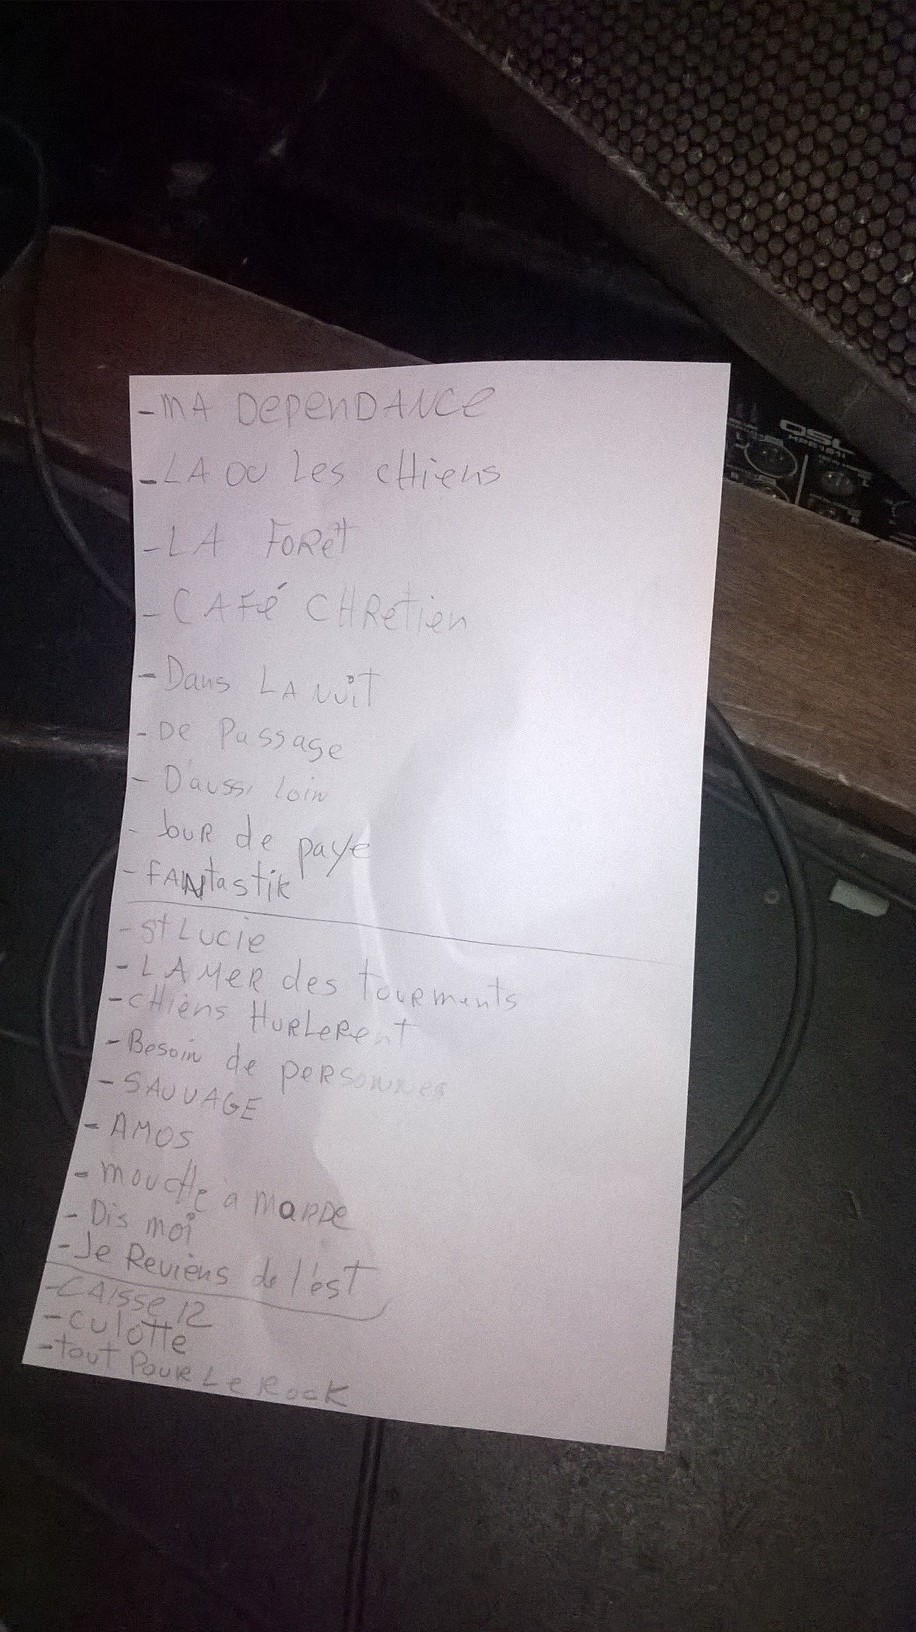 - MA DEPENDANCE
- LA OU Les CHiens
- LA FORêt
- CAFé CHRetien
- Dans LA NUiT
- De Passage
- D'aussi Loin
- Jour de paye
- FANtastik
- St Lucie
- LA MER des tourments
- CHiens HURLeRent
- Besoin de personnes
- SAUVAGE
- AMOS
- moucHe à MARDE
- Dis moi
- Je Reviens de l'est
- CAisse 12
- culotte
- tout Pour Le Rock
QSC